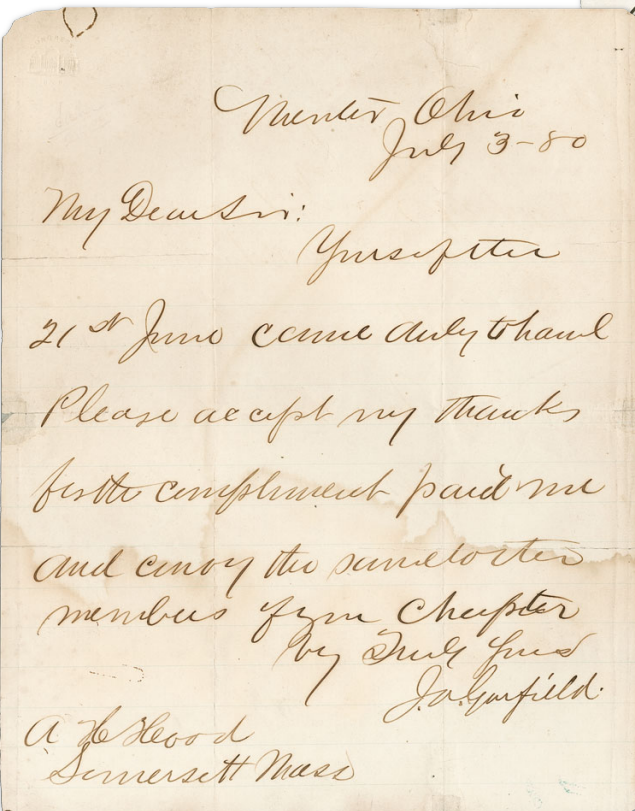 Mentor Ohio
July 3-80
My Dear Sir:
Yours of the
21st June came duly to hand
Please accept my thanks
for the compliment paid me
and convey the same to the
members of your Chapter
Very Truly Yours
J.A. Garfield.
A H Hood
Somersett Mass